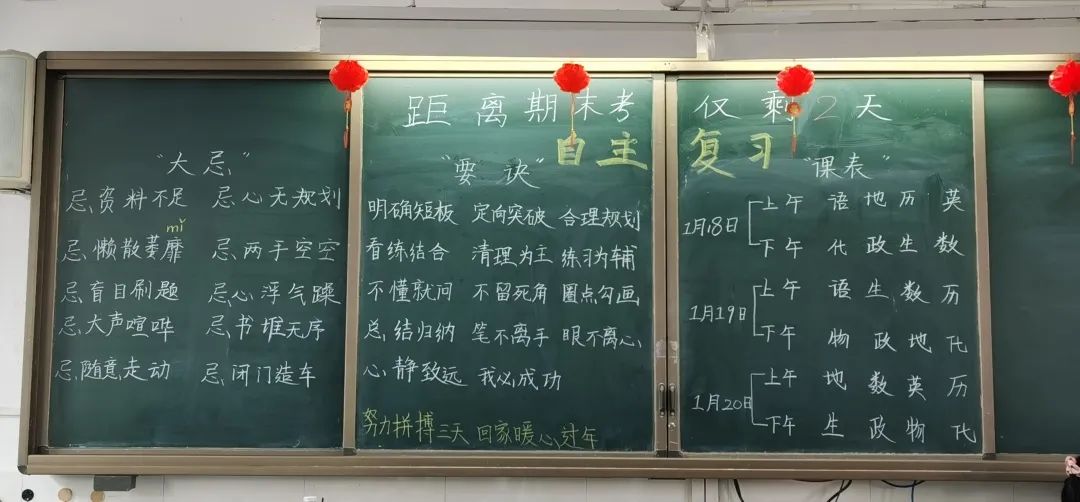 距离期末考 仅剩2天
自主复习
"大忌"
忌资料不足 忌心无规划
mǐ
忌懒散萎靡 忌两手空空
忌盲目刷题 忌心浮气躁
忌大声喧哗 忌书堆无序
忌随意走动 忌闭门造车
"要诀"
明确短板 定向突破 合理规划
看练结合 清理为主 练习为辅
不懂就问 不留死角 圈点勾画
总结归纳 笔不离手 眼不离心
心静致远 我必成功
努力拼搏三天 回家暖心过年
"课表"
1月18日 上午 语 地 历 英
下午 代 政 生 数
1月19日 上午 语 生 数 历
下午 物 政 地 代
1月20日 上午 地 数 英 历
下午 生 政 物 代